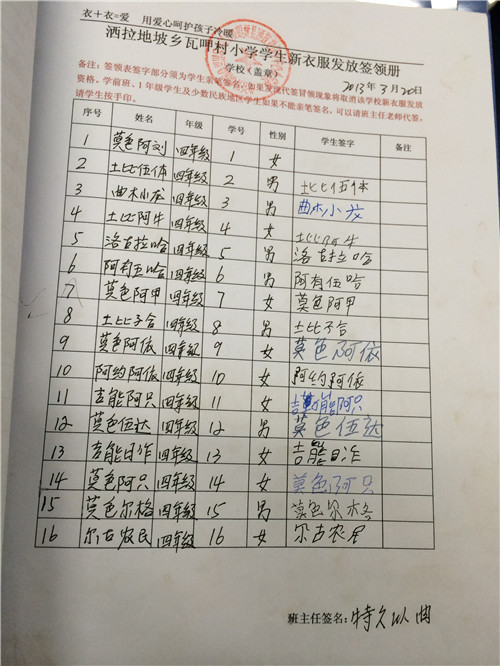 衣+衣=爱 用爱心呵护孩子冷暖
洒拉地坡乡瓦呷村小学学生新衣服发放签领册
学校（盖章）
2013年3月20日
备注：签领表签字部分须为学生亲笔签名，如果发现代签冒领现象将取消该学校新衣服发放
资格。学前班、1年级学生及少数民族地区学生如果不能亲笔签名，可以请班主任老师代签，
请学生按手印。
序号 姓名 年级 学号 性别 学生签字 备注
1 莫色阿刘 四年级 1 女
2 土比伍体 四年级 2 男 土比伍体
3 曲木小龙 四年级 3 男 曲木小龙
4 土比阿牛 四年级 4 女 土比阿牛
5 洛古拉哈 四年级 5 男 洛古拉哈
6 阿有五哈 四年级 6 男 阿有伍哈
7 莫色阿甲 四年级 7 女 莫色阿甲
8 土比子合 四年级 8 男 土比子合
9 莫色阿依 四年级 9 女 莫色阿依
10 阿约阿依 四年级 10 女 阿约阿依
11 吉能阿只 四年级 11 女 吉能阿只
12 莫色伍达 四年级 12 男 莫色伍达
13 吉能日作 四年级 13 女 吉能日作
14 莫色阿只 四年级 14 女 莫色阿只
15 莫色尔格 四年级 15 男 莫色尔格
16 尔古农民 四年级 16 女 尔古农民
班主任签名：特久以曲